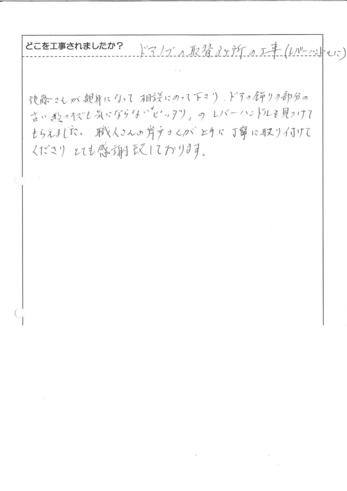 どこを工事されましたか？ ドアノブの取替3ヶ所の工事(レバーハンドルに)
さんが親身になって相談にのって下さり、ドアの飾りの部分の
古い 気にならない“ピッタリ”のレバーハンドルを見つけて
もらえました。職人さんの さんが上手に丁寧に取り付けて
くださり とても感謝致しております。